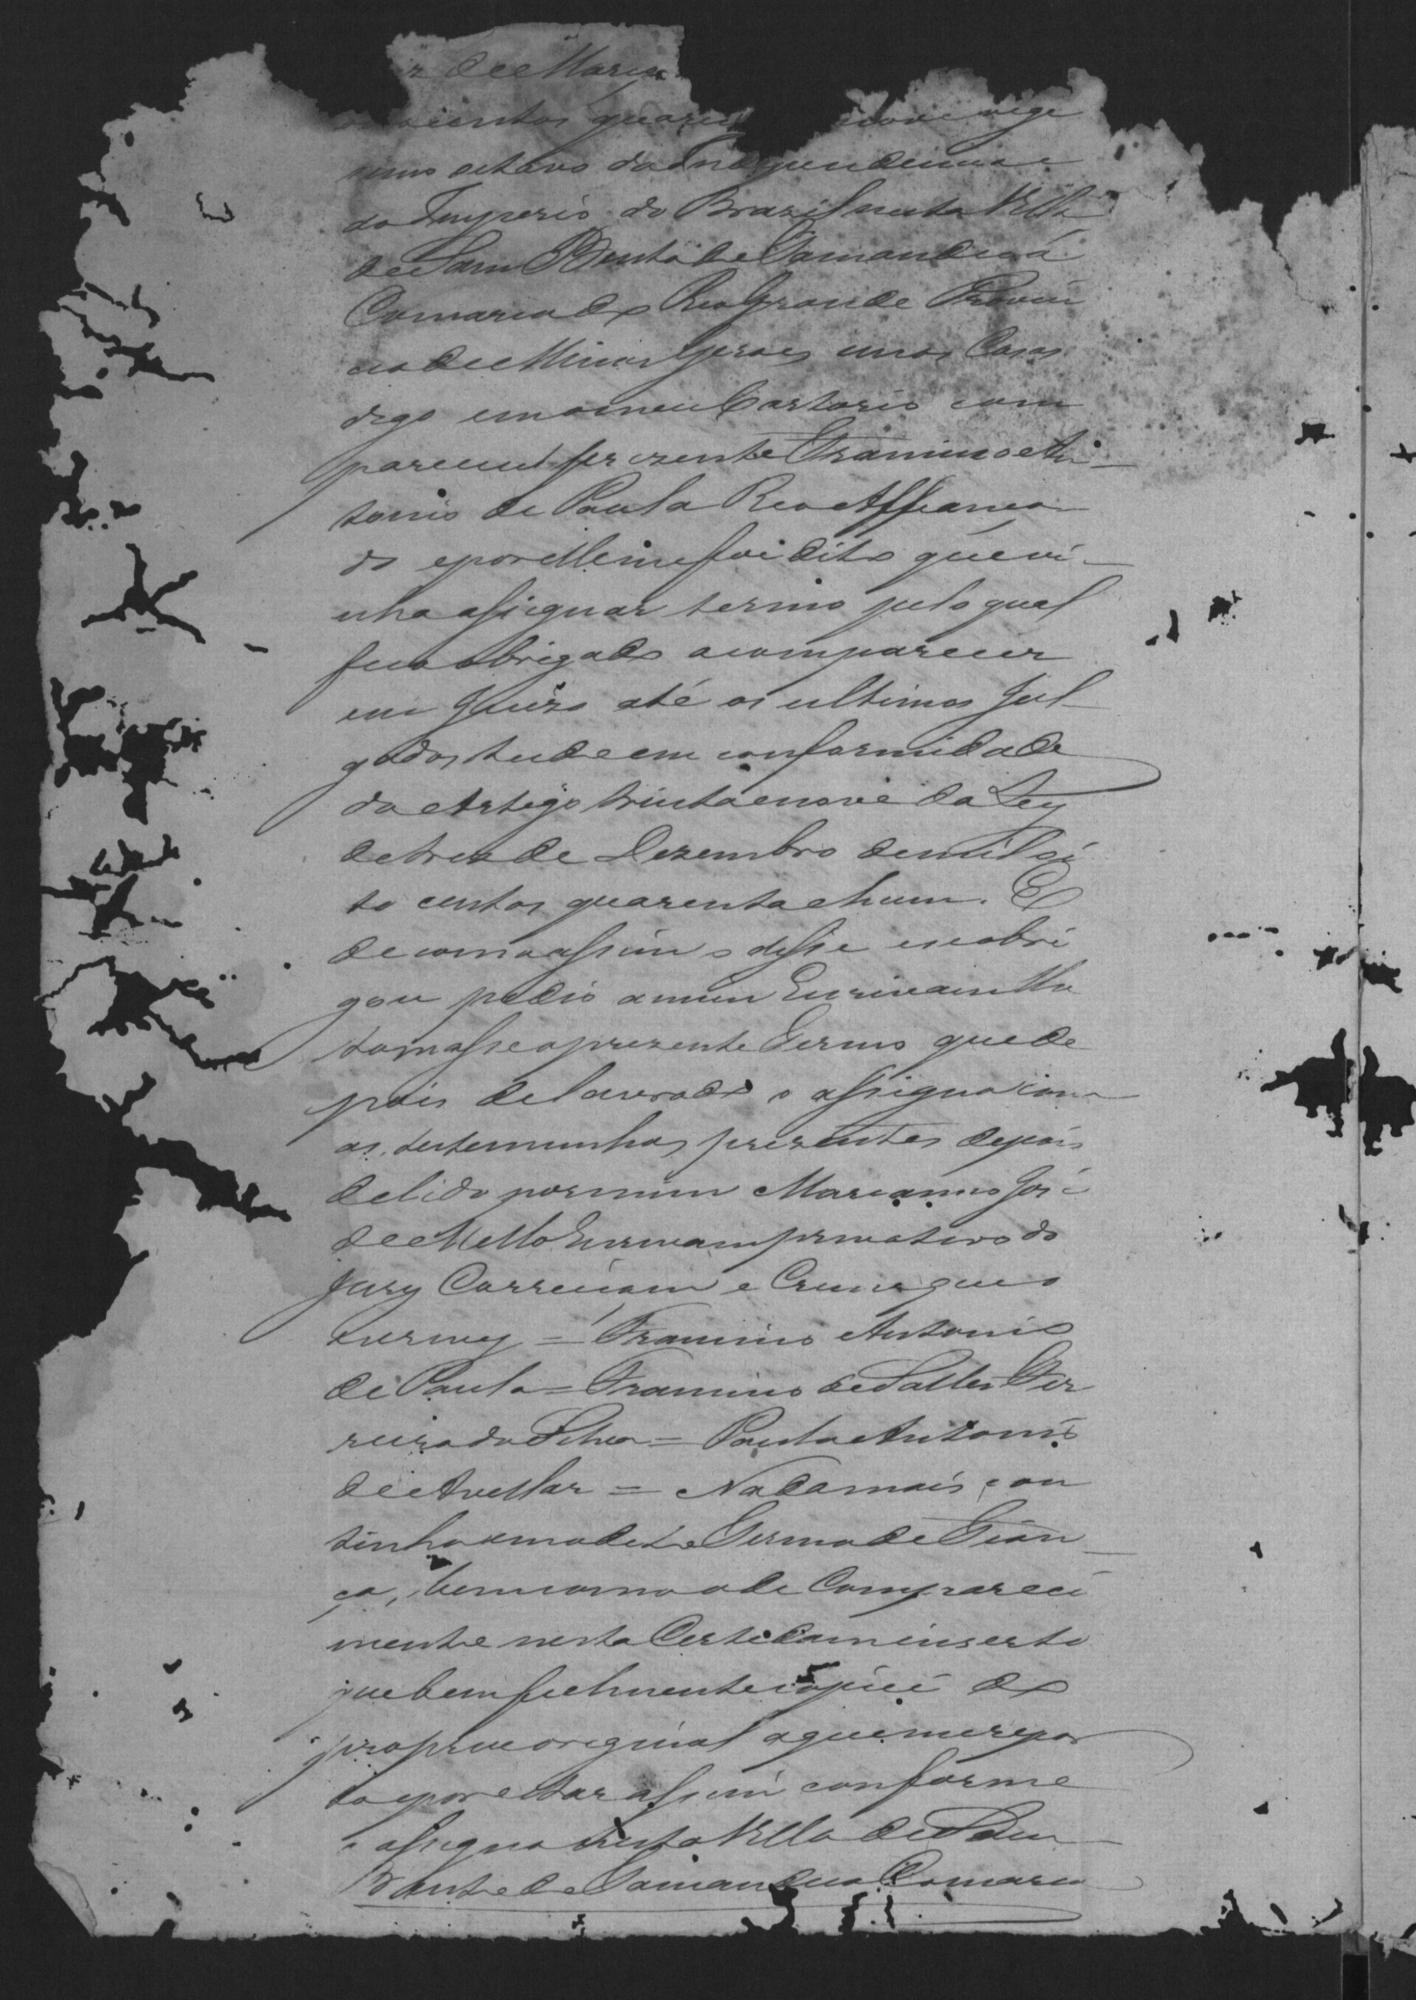 de Março
centos quaren nove vige
simo oitavo da Independencia e
do Imperio do Brazil nesta Villa
de Sam Bento de Tamanduá
Comarca do Rio Grande Provin
cia de Minas Geraes em os Casas
digo em o meu Cartorio com
pareceu prezente Francisco An
tonio de Paula Reo Affianca
do e por elle me foi dito que vi
nha assignar termo pelo qual
fica obrigado a comparecer
em Juizo até os ultimos Jul
gados tudo em conformidade
do Artigo trinta e nove da Ley
de tres de Dezembro de mil oi
to centos quarenta e hum. E
de como assim o disse e se obri
gou pedio a mim Escrivam lhe
tomasse o prezente Termo que de
pois de lavrado o assigna com
as testemunhas prezentes depois
de lido por mim Marianno José
de Mello Escrivam privativo do
Jury Correiçam e Crime que o
escrevy = Francisco Antonio
de Paula = Francisco de Salles Fer
reira da Silva = Paulo Antonio
de Avellar = Nada mais con
tinha em o dito Termo de Fian
ça, bem como o de Compareci
mento nesta Certidam inserto
que bem fielmente copiei do
proprio original a que me repor
to e por estar assim conforme
o assigno nesta Villa de Sam
Bento de Tamandua Comarca